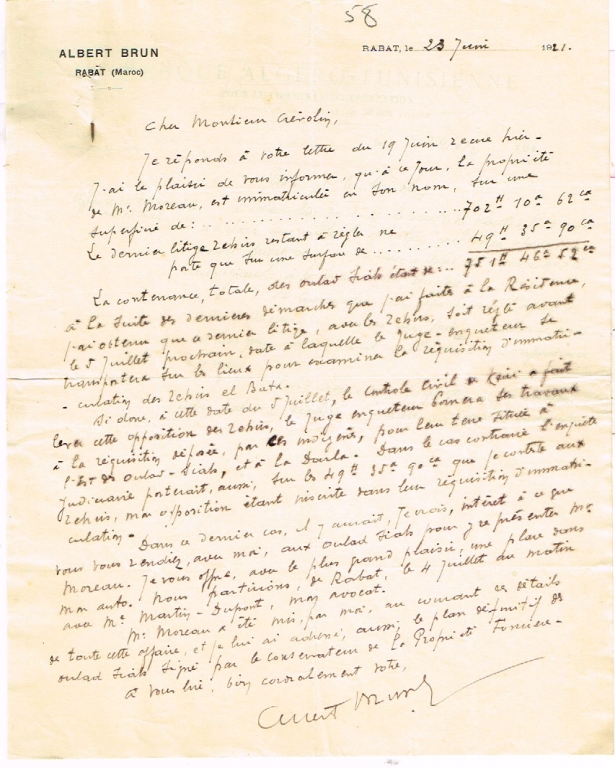 58
ALBERT BRUN
RABAT (Maroc)
RABAT, le 23 Juin 1921.
Cher Monsieur Crévolin,
Je réponds à votre lettre du 19 Juin reçue hier.
J'ai le plaisir de vous informer, qu'à ce jour, la propriété
de Mr. Moreau, est immatriculée en son nom, sur une
superficie de: .................... 702 H 10 a 62 ca
Le dernier litige Zehuis restant à régler ne
porte que sur une surface de .......... 49 H 35 a 90 ca
La contenance, totale, des oulad Siab étant de: .. 751 H 46 a 52 ca
à la suite des dernières démarches que j'ai faite à la Résidence,
j'ai obtenu que ce dernier litige, avec les Zehuis, soit réglé avant
le 5 Juillet prochain, date à laquelle le Juge-enqueteur se
transportera sur les lieux pour examiner la réquisition d'immatri-
-culation des Zehuis el Bata.
Si donc, à cette date du 5 Juillet, le controle Civil a fait
lever cette opposition des Zehuis, le Juge enqueteur bornera ses travaux
à la réquisition déposée, par ces indigènes, pour leur terre située à
l'Est des Oulad-Siab, et à la Daela. Dans le cas contraire l'enquête
judiciaire porterait, aussi, sur les 49 H 35 a 90 ca que je conteste aux
Zehuis, mon opposition étant inscrite dans leur réquisition d'immatri-
culation.
Dans ce dernier cas, il y aurait, je crois, intérêt à ce que
vous vous rendiez, avec moi, aux Oulad Siab pour y représenter Mr.
Moreau. Je vous offre, avec le plus grand plaisir, une place dans
mon auto. Nous partirions, de Rabat, le 4 Juillet au matin
avec Me. Martin-Dupont, mon avocat.
Mr. Moreau a été mis, par moi, au courant des détails
de toute cette affaire, et je lui ai adressé, aussi, le plan définitif des
oulad Siab signé par le conservateur de la Propriété Foncière.
à vous lire, bien cordialement votre,
Albert Brun